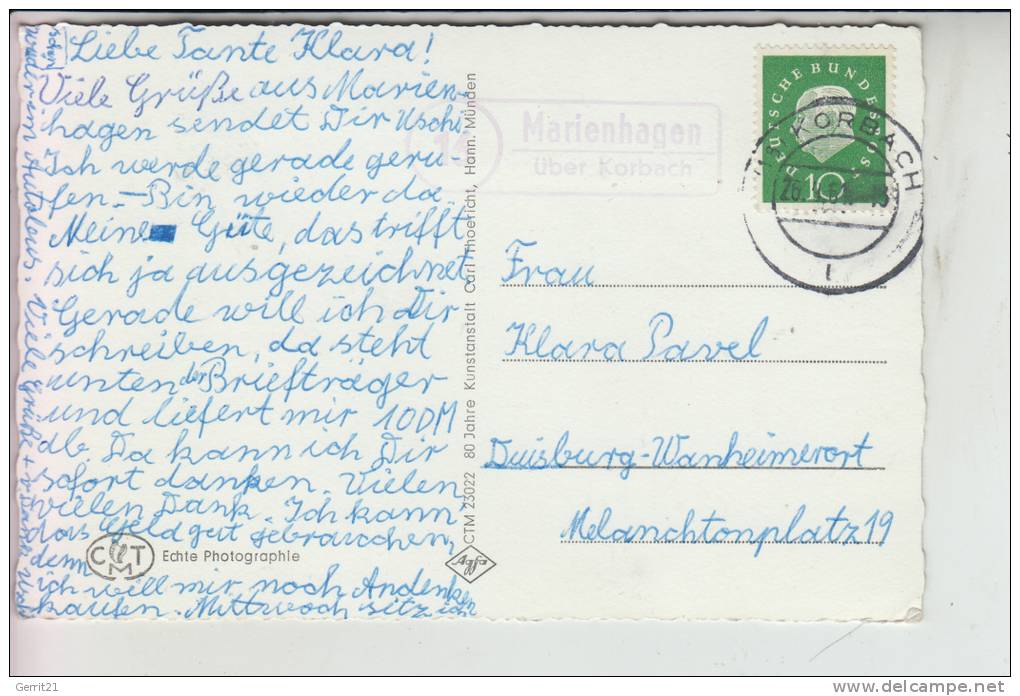 Liebe Tante Klara!
Viele Grüße aus Marien-
hagen sendet Dir Uschi.
Ich werde gerade geru-
fen. – Bin wieder da.
Meine Güte, das trifft
sich ja ausgezeichnet.
Gerade will ich Dir
schreiben, da steht
unten der Briefträger
und liefert mir 10DM
ab. Da kann ich Dir
sofort danken. Vielen,
vielen Dank. Ich kann
das Geld gut gebrauchen,
denn
ich will mir noch Andenken
kaufen. Mittwoch sitz ich
schon
wieder im Autobus. Viele Grüße +
CMT
Echte Photographie
CTM 23022 80 Jahre Kunstanstalt Carl Thoericht, Hann. Münden
Agfa
Marienhagen
über Korbach
DEUTSCHE BUNDESPOST
10
KORBACH
1
Frau
Klara Pavel
Duisburg-Wanheimerort
Melanchtonplatz 19
Gerrit21
www.delcampe.net